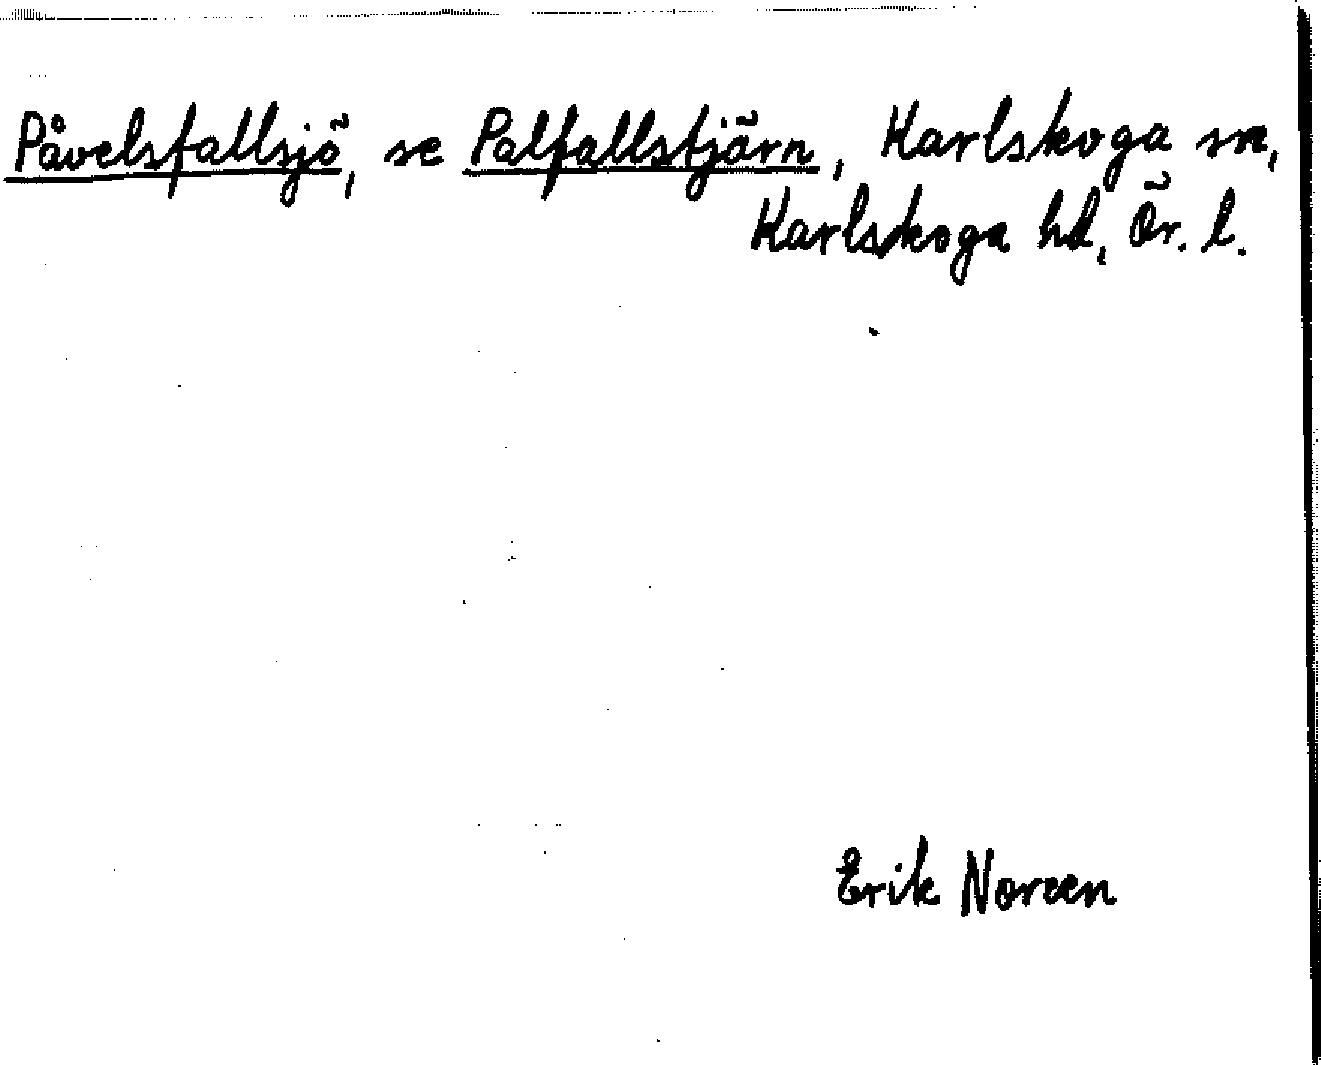 Påvelsfallsjö, se Palfallstjärn, Karlskoga sn,
Karlskoga hd, Ör. l.
Erik Noreen